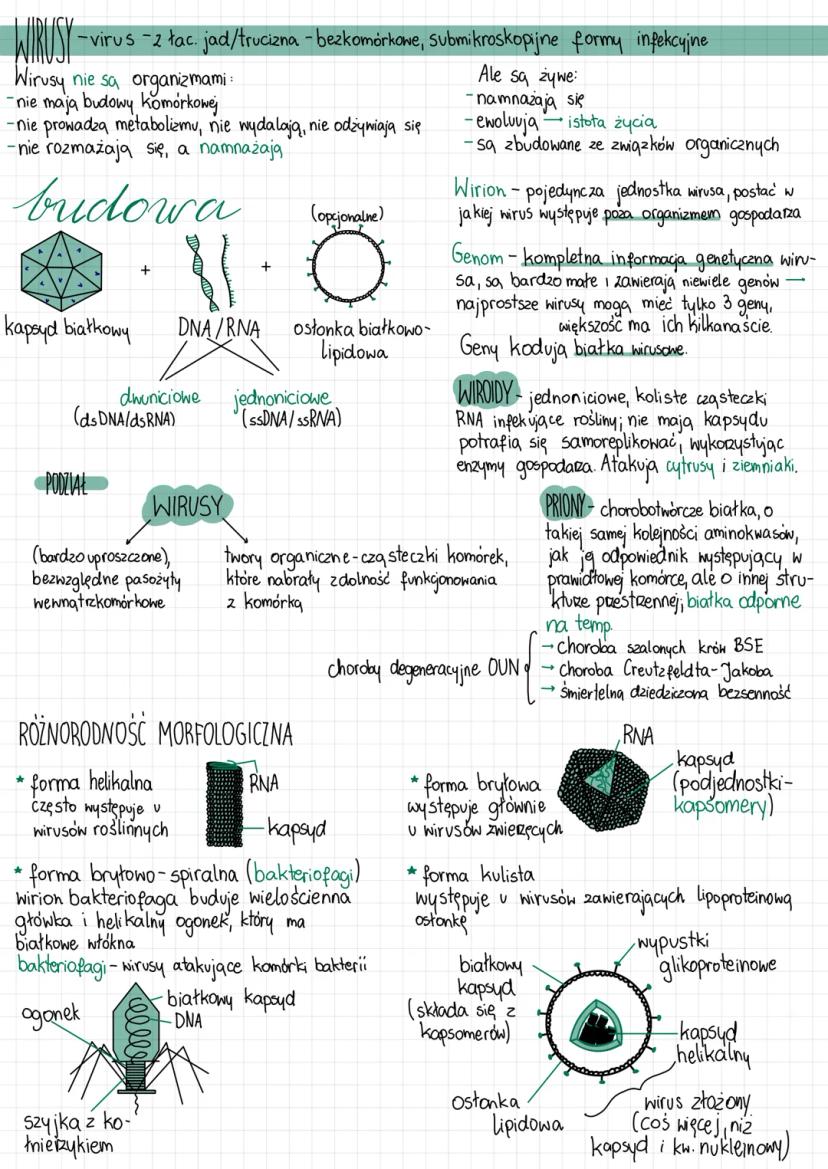 WIRUSY - virus - z łac. jad/trucizna - bezkomórkowe, submikroskopijne formy infekcyjne
Wirusy nie są organizmami:
- nie mają budowy komórkowej
- nie prowadzą metabolizmu, nie wydalają, nie odżywiają się
- nie rozmażają się, a namnażają
Ale są żywe:
- namnażają się
- ewoluują → istota życia
- są zbudowane ze związków organicznych
budowa
kapsyd białkowy
+
DNA/RNA
+
(opcjonalne)
osłonka białkowo-
lipidowa
dwuniciowe
(dsDNA/dsRNA)
jednoniciowe
(ssDNA/ssRNA)
Wirion - pojedyncza jednostka wirusa, postać w
jakiej wirus występuje poza organizmem gospodarza
Genom - kompletna informacja genetyczna wiru-
sa, są bardzo małe i zawierają niewiele genów →
najprostsze wirusy mogą mieć tylko 3 geny,
większość ma ich kilkanaście.
Geny kodują białka wirusowe.
WIROIDY - jednoniciowe, koliste cząsteczki
RNA infekujące rośliny; nie mają kapsydu
potrafią się samoreplikować, wykorzystując
enzymy gospodarza. Atakują cytrusy i ziemniaki.
PODZIAŁ
WIRUSY
(bardzo uproszczone),
bezwzględne pasożyty
wewnątrzkomórkowe
twory organiczne - cząsteczki komórek,
które nabrały zdolność funkcjonowania
z komórką
PRIONY - chorobotwórcze białka, o
takiej samej kolejności aminokwasów,
jak jej odpowiednik występujący w
prawidłowej komórce, ale o innej stru-
kturze przestrzennej; białka odporne
na temp.
choroby degeneracyjne OUN
→ choroba szalonych krów BSE
→ choroba Creutzfeldta-Jakoba
→ śmiertelna dziedziczona bezsenność
RÓŻNORODNOŚĆ MORFOLOGICZNA
* forma helikalna
często występuje u
wirusów roślinnych
RNA
kapsyd
* forma bryłowa
występuje głównie
u wirusów zwierzęcych
RNA
kapsyd
(podjednostki-
kapsomery)
* forma bryłowo-spiralna (bakteriofagi)
wirion bakteriofaga buduje wielościenna
główka i helikalny ogonek, który ma
białkowe włókna
bakteriofagi - wirusy atakujące komórki bakterii
ogonek
białkowy kapsyd
DNA
szyjka z ko-
łnierzykiem
* forma kulista
występuje u wirusów zawierających lipoproteinową
osłonkę
białkowy
kapsyd
(składa się z
kapsomerów)
wypustki
glikoproteinowe
kapsyd
helikalny
osłonka
lipidowa
wirus złożony
(coś więcej, niż
kapsyd i kw. nukleinowy)